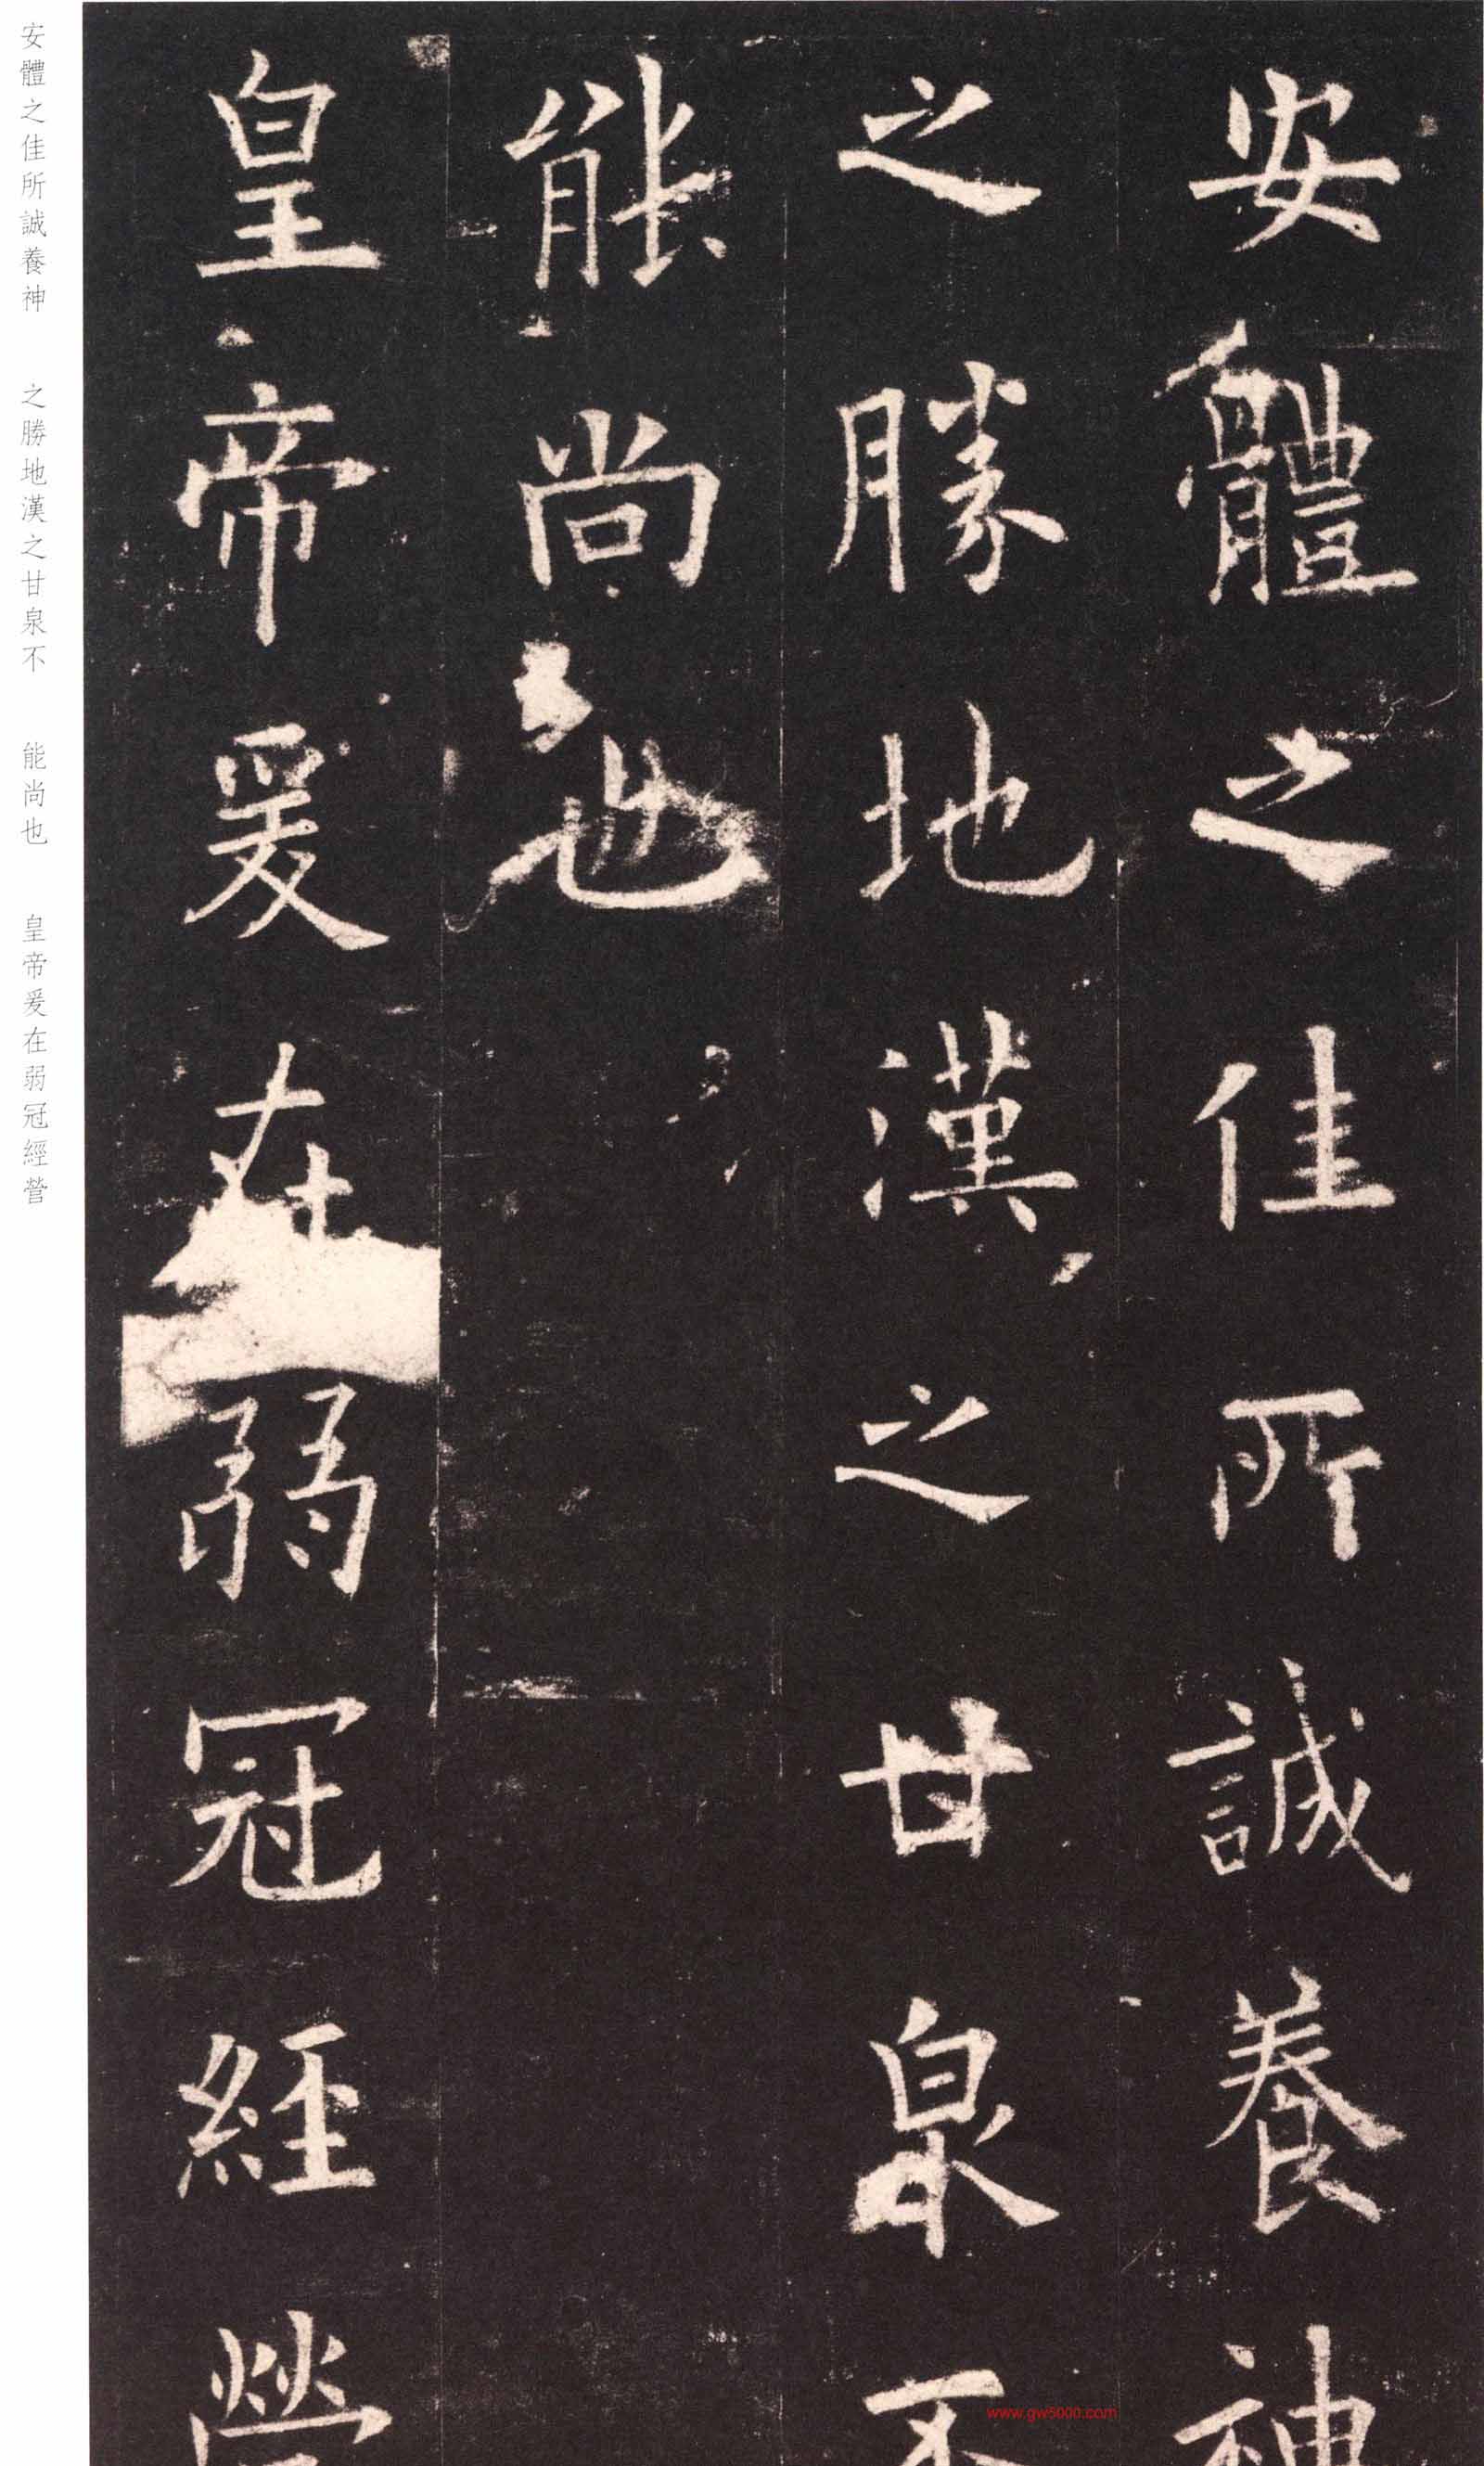 安體之佳所誠養神
之勝地漢之甘泉不
能尚也
皇帝爰在弱冠經營
安體之佳所誠養神 之勝地漢之甘泉不 能尚也 皇帝爰在弱冠經營
www.gw5000.com